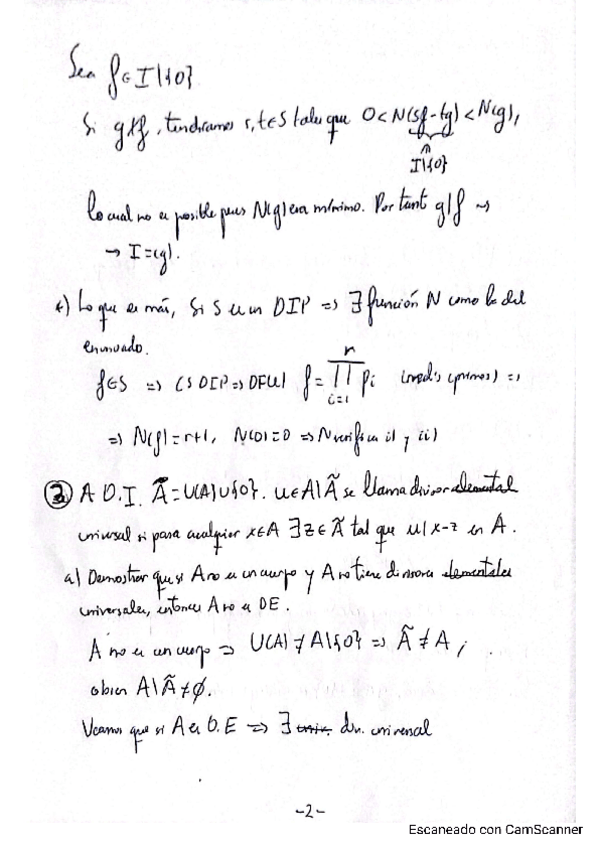 Sea f∈I\{0}
Si g∤f, tendríamos s,t∈S tales que 0<N(sf-tg)<N(g),
∩
I\{0}
lo cual no es posible pues N(g) era mínimo. Por tant g|f →
→ I=(g).
*) Lo que es más, Si S es un DIP => ∃ función N como la del
enunciado.
f∈S => (S DIP=>DFU) f=∏_{i=1}^{r} pi (irred's (primos)) =>
=> N(f)=r+1, N(0)=0 => N verifica i) y ii)
② A D.I. Ã=U(A)∪{0}. u∈A\Ã se llama divisor elemental
universal si para cualquier x∈A ∃z∈Ã tal que u|x-z en A.
a) Demostrar que si A no es un cuerpo y A no tiene divisores elementales
universales, entonces A no es DE.
A no es un cuerpo => U(A)≠A\{0} => Ã≠A;
A\Ã≠∅.
Veamos que si A es D.E => ∃ univ. div. universal
-2-
Escaneado con CamScanner